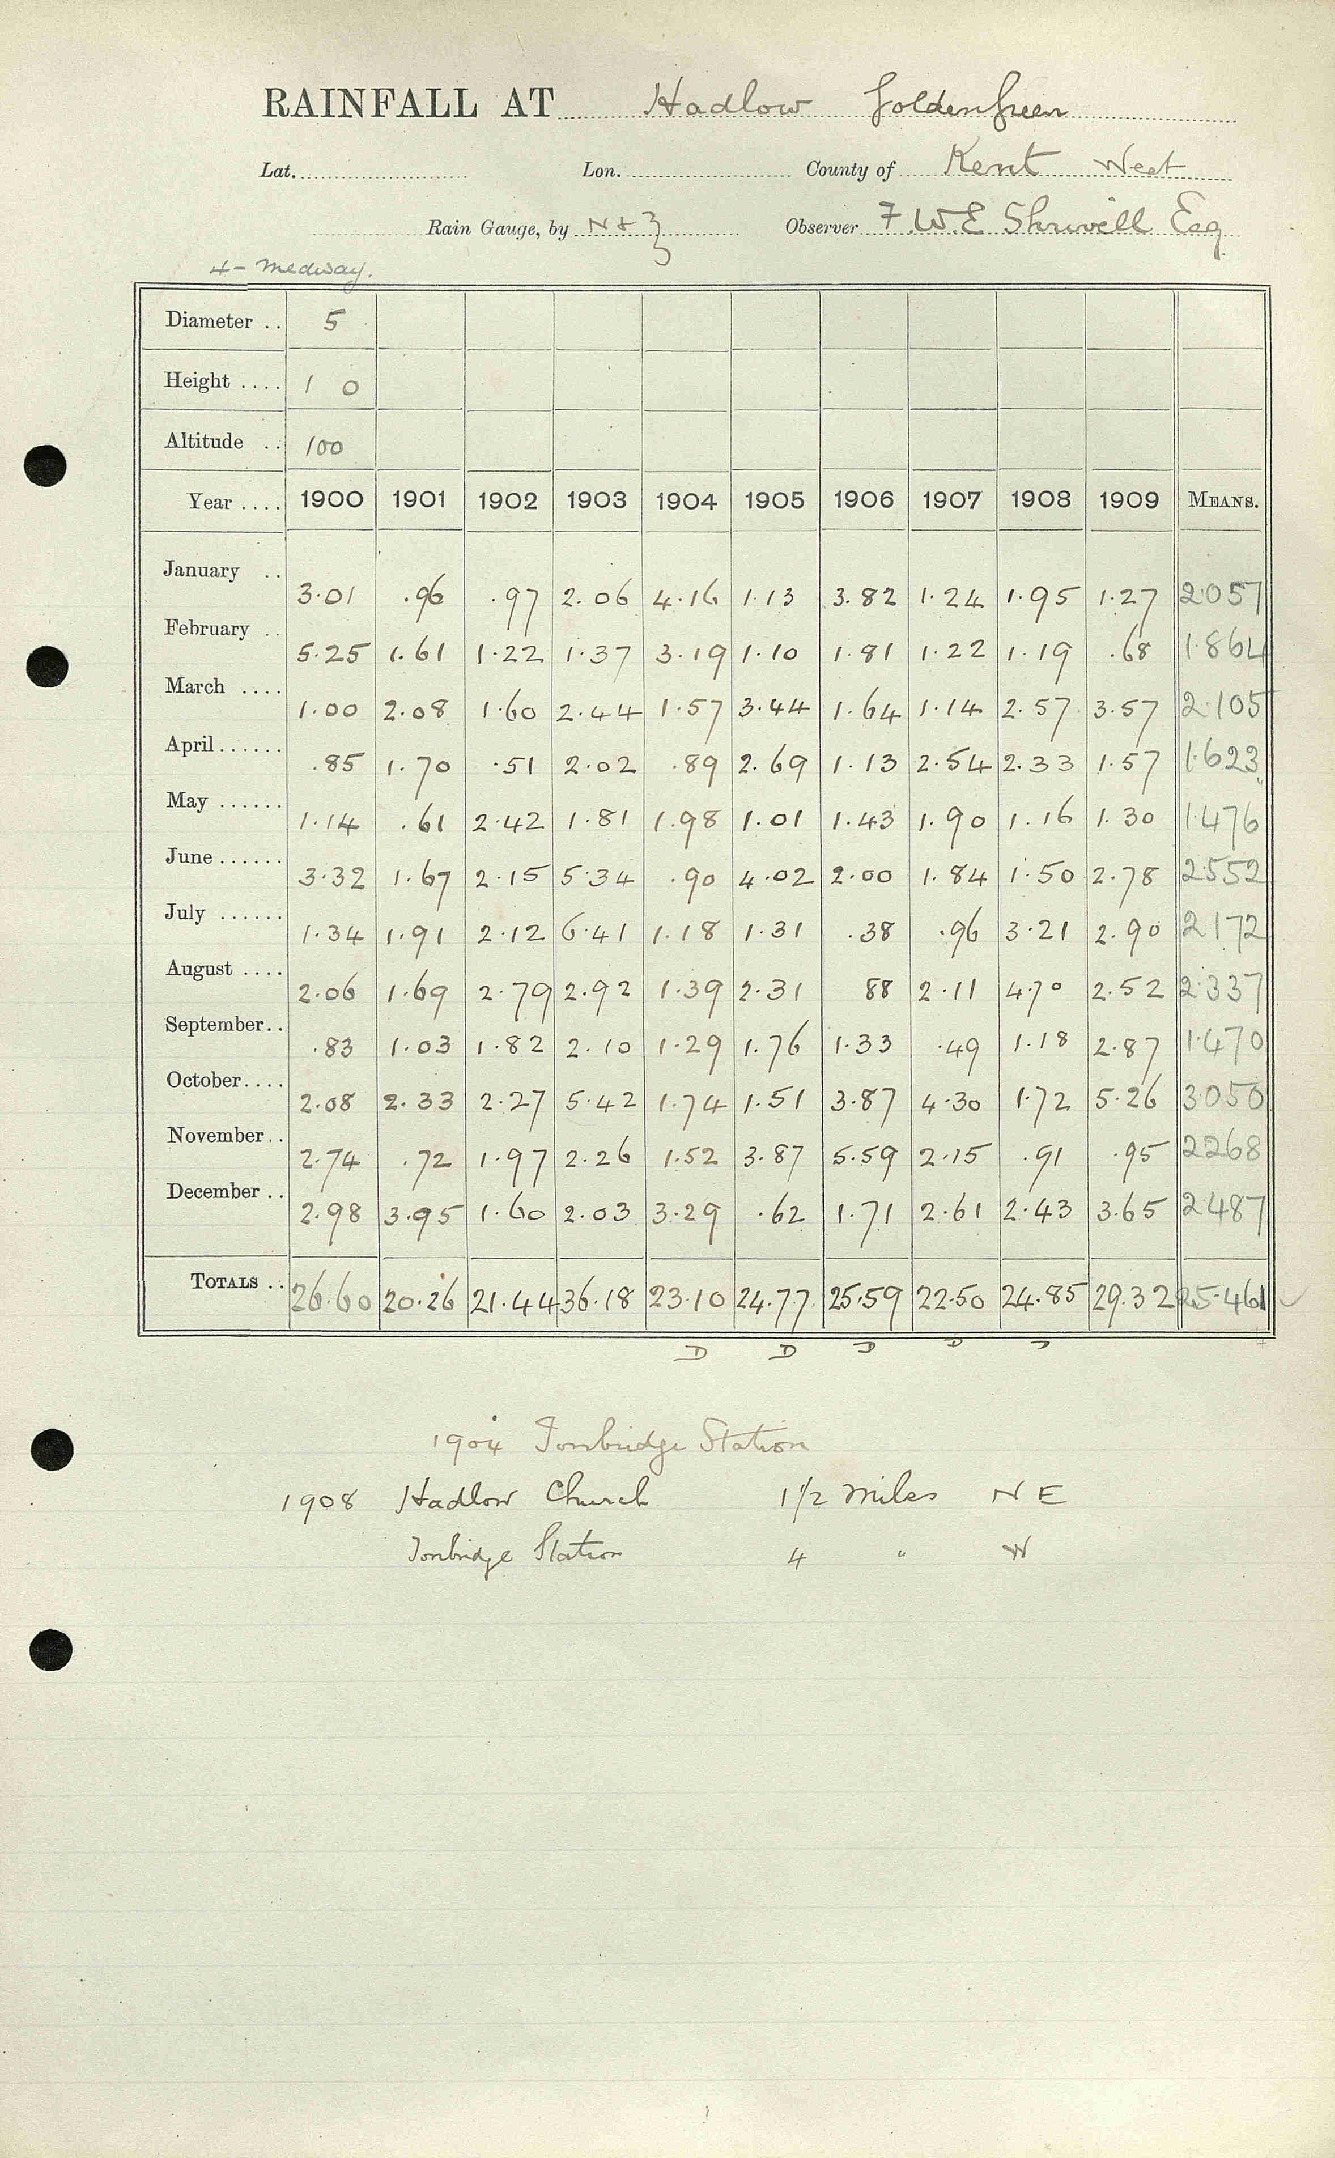 RAINFALL AT Hadlow Golden Green
Lat. Lon. County of Kent West
Rain Gauge, by N & Z Observer F.W.E Shruvell Esq
4 - Medway.
Diameter .. 5
Height .... 1 0
Altitude .. 100
Year .... 1900 1901 1902 1903 1904 1905 1906 1907 1908 1909 MEANS.
January .. 3.01 .96 .97 2.06 4.16 1.13 3.82 1.24 1.95 1.27 2.057
February .. 5.25 1.61 1.22 1.37 3.19 1.10 1.81 1.22 1.19 .68 1.864
March .... 1.00 2.08 1.60 2.44 1.57 3.44 1.64 1.14 2.57 3.57 2.105
April...... .85 1.70 .51 2.02 .89 2.69 1.13 2.54 2.33 1.57 1.623
May ...... 1.14 .61 2.42 1.81 1.98 1.01 1.43 1.90 1.16 1.30 1.476
June ...... 3.32 1.67 2.15 5.34 .90 4.02 2.00 1.84 1.50 2.78 2.552
July ...... 1.34 1.91 2.12 6.41 1.18 1.31 .38 .96 3.21 2.90 2172
August .... 2.06 1.69 2.79 2.92 1.39 2.31 88 2.11 4.70 2.52 2.337
September.. .83 1.03 1.82 2.10 1.29 1.76 1.33 .49 1.18 2.87 1.470
October.... 2.08 2.33 2.27 5.42 1.74 1.51 3.87 4.30 1.72 5.26 3050
November.. 2.74 .72 1.97 2.26 1.52 3.87 5.59 2.15 .91 .95 2268
December .. 2.98 3.95 1.60 2.03 3.29 .62 1.71 2.61 2.43 3.65 2.487
TOTALS .. 26.60 20.26 21.44 36.18 23.10 24.77 25.59 22.50 24.85 29.32 25.461
D D D D D
1904 Tonbridge Station
1908 Hadlow Church 1 1/2 miles N E
Tonbridge Station 4 " W